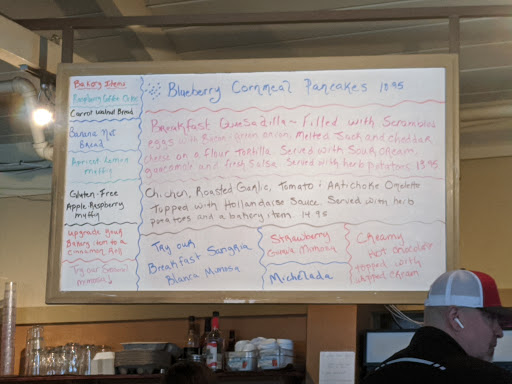 Bakery Items
Raspberry Coffee Cake
Carrot Walnut Bread
Banana Nut
Bread
Apricot
muffin
Gluten-Free
Apple Raspberry
Muffin
Upgrade your
Bakery item to a
Cinnamon Roll
Try our
mimosa!
Blueberry Cornmeal Pancakes 10.95
Breakfast Quesadilla - Filled with Scrambled
eggs with Bacon, green onion, Melted Jack and cheddar
cheese on a flour Tortilla. Served with Sour Cream
guacamole and fresh Salsa. Served with herb potatoes 13.95
Chicken, Roasted Garlic, Tomato & Artichoke Omelette
Topped with Hollandaise Sauce. Served with herb
potatoes and a bakery item 14.95
Try our
Breakfast Sangria
Blanca Mimosa
Strawberry
Mimosa
Michelada
Creamy
Hot chocolate
topped with
whipped cream